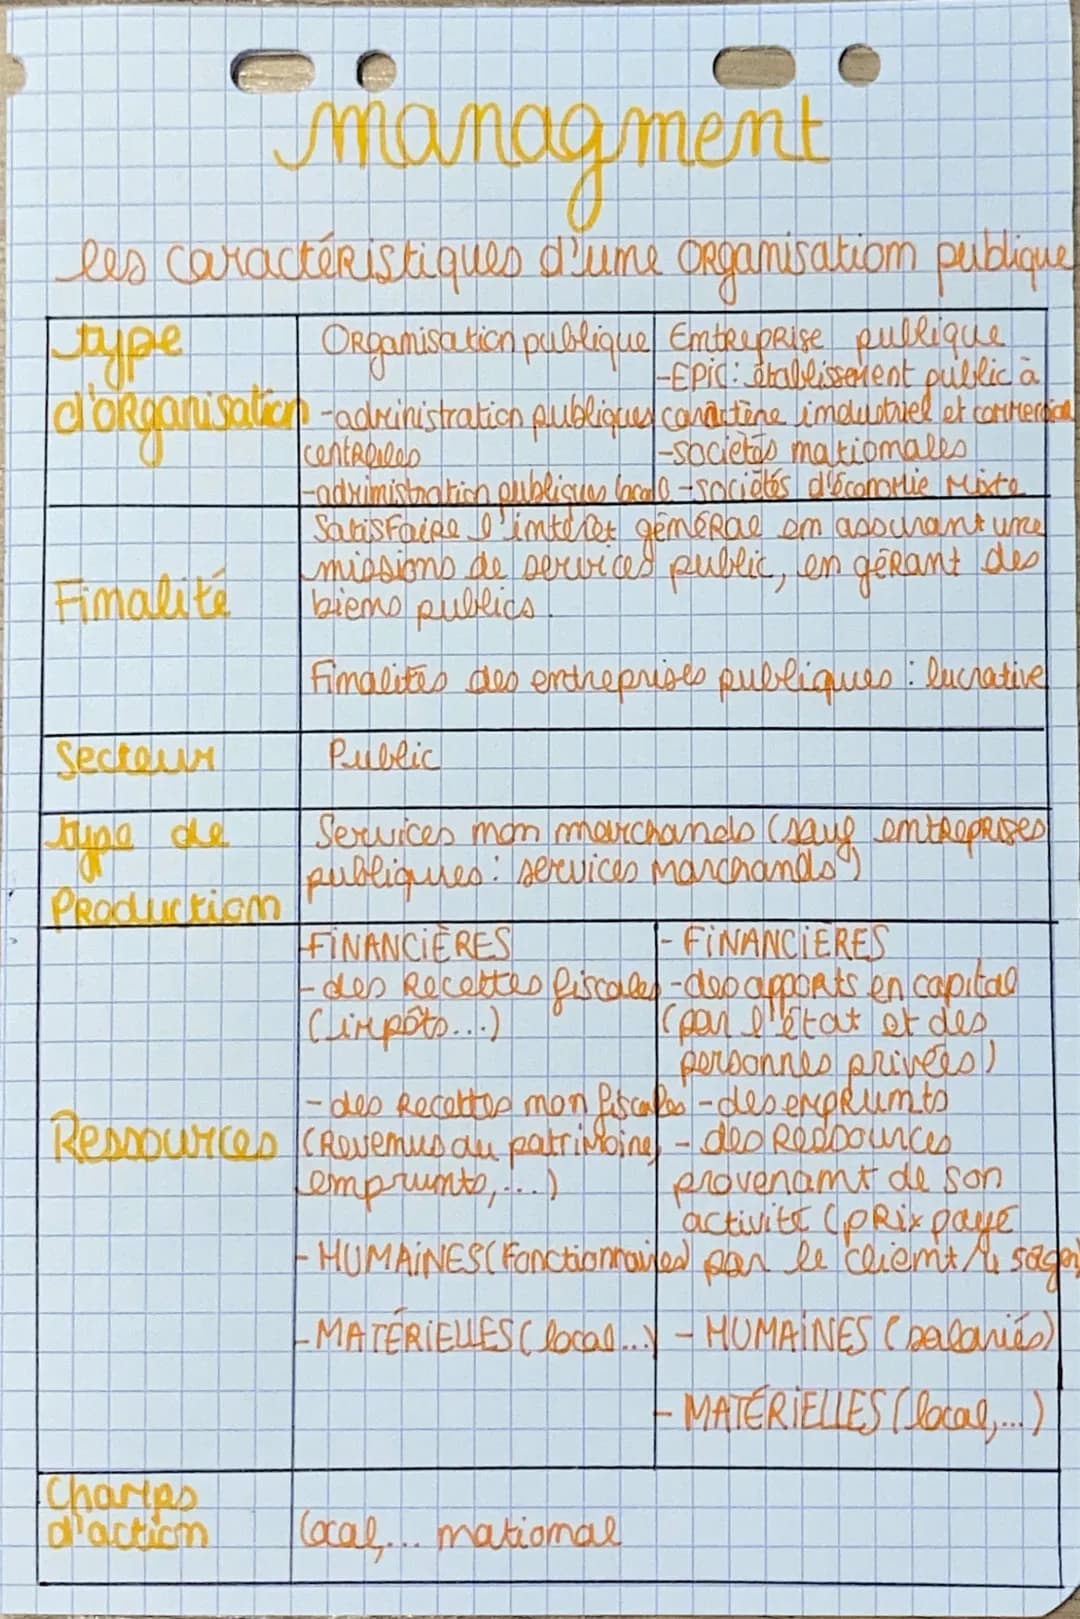 managment
les caractéristiques d'une organisation publique
type
d'organisation
Organisation publique
-administration publiques
centrales
-administration publiques locale
Entreprise publique
-EPIC: établissement public à
caractène industriel et commercial
-sociétés nationales
-sociétés d'économie Mixte
Finalité
Satisfaire l'intéret général en assurant une
missions de services public, en gérant des
biens publics.
Finalités des entreprises publiques : lucrative
Secteur
Public
type de
Production
Services non marchands (sauf entreprises
publiques: services marchands)
Ressources
-FINANCIÈRES
- des Recettes fiscales
(impôts...)
- des Recettes non fiscales
(Revenus du patrimoine,
emprunts,...)
- HUMAINES (Fonctionnaires)
- MATÉRIELLES (local...)
- FINANCIÈRES
- des apports en capital
(par l'État et des
personnes privées)
- des emprunts
- des Ressources
provenant de son
activité (prix payé
par le client/
- HUMAINES (salariés)
- MATÉRIELLES (local,...)
Champs
d'action
local,... national